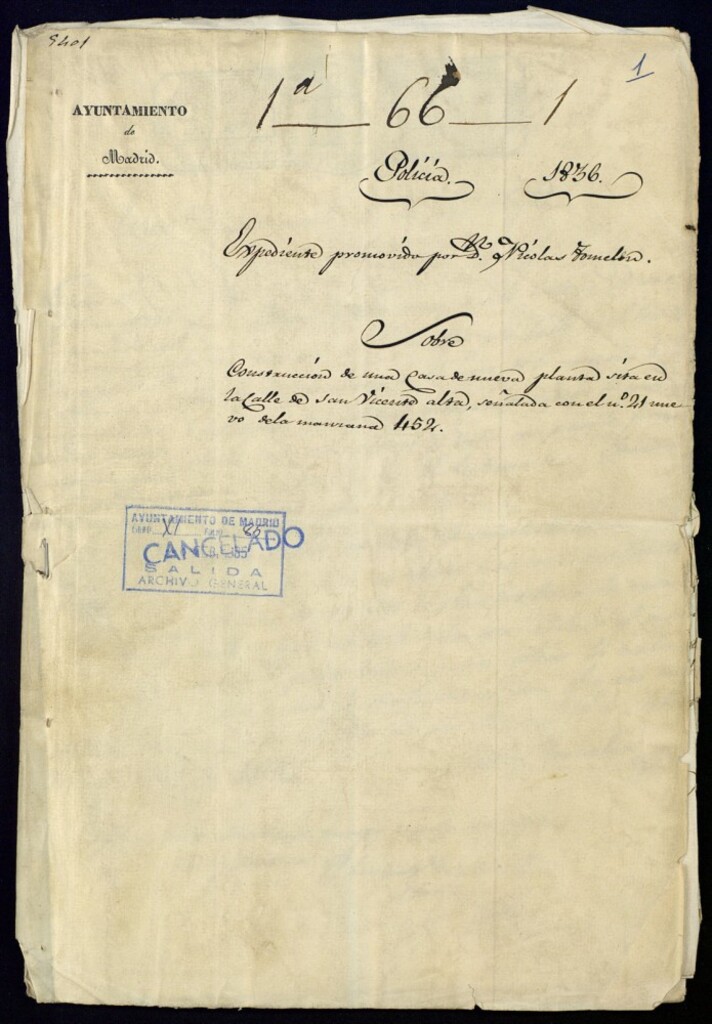 5401
1
1ª 66 1
AYUNTAMIENTO
de
Madrid.
Policía. 1836.
Expediente promovido por D. Nicolas Tomelen.
Sobre
Construcción de una Casa de nueva planta sita en
la Calle de San Vicente alta, señalada con el nº. 21 nue-
vo de la manzana 452.
AYUNTAMIENTO DE MADRID
XI 86
CANCELADO
SALIDA
ARCHIVO GENERAL